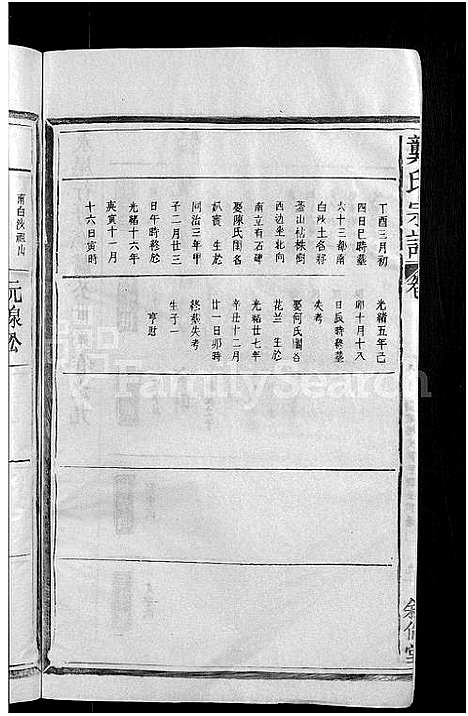 龔氏宗譜
卷
敘倫堂
丁酉三月初
四日巳時墓
六十三都南
白沙土名將
茶山坫株樹
西边坐北向
南立有石碑
娶陳氏閨名
訊宾 生於
同治三年甲
子二月廿三
日午時終於
光緒十六年
庚寅十一月
十六日寅時
光緒五年己
卯十月十八
日辰時終墓
失考
娶何氏閨名
花兰 生於
光緒廿七年
辛丑十二月
廿一日卯時
終墓失考
生子一
亨財
南白沙祖山
元線公
FamilySearch